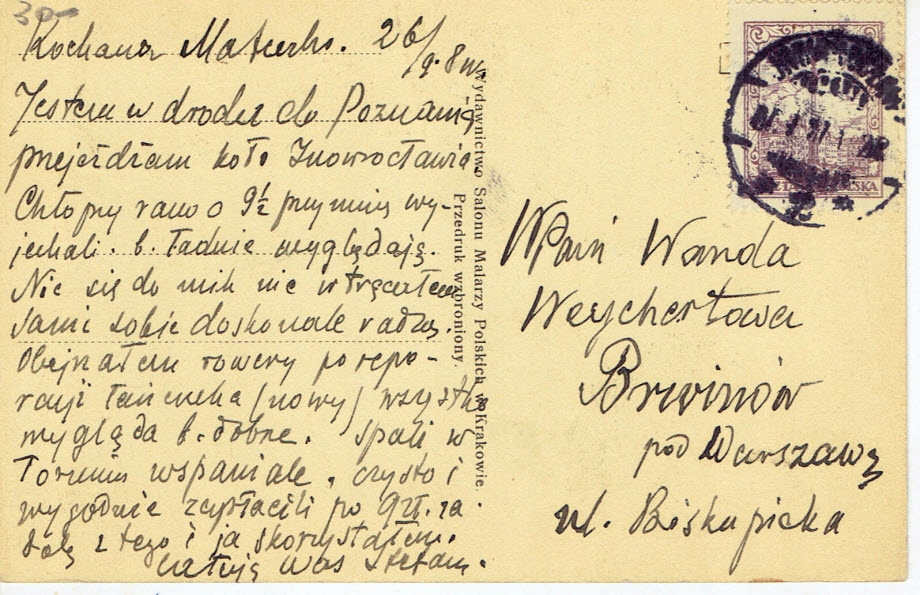 30-
Kochana Mateczko. 26/
9. 8 w.
Jestem w drodze do Poznania
przejeżdżam koło Inowrocławia
Chłopcy rano o 9½ wy-
jechali. b. ładnie wyglądają.
Nic się do nich nie wtrącałem
sami sobie doskonale radzą.
Obejrzałem rowery po repe-
racji łańcucha (nowy) wszystko
wygląda b. dobrze. Spali w
Toruniu wspaniale, czysto i
wygodnie zapłacili po 9zł. za
dobę z tego i ja skorzystałem.
Całuję Was Stefan.
Wydawnictwo Salonu Malarzy Polskich w Krakowie.
Przedruk wzbroniony.
POLSKA
WPani Wanda
Weychertowa
Brwinów
pod Warszawą
ul. Biskupicka